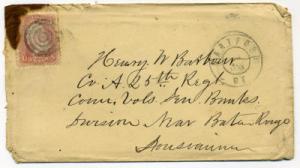 HARTFORD
Henry W Barbour
Co. A 25th Regt
Conn. Vols. Gen Banks.
Division Near Baton Rouge
Louisiana